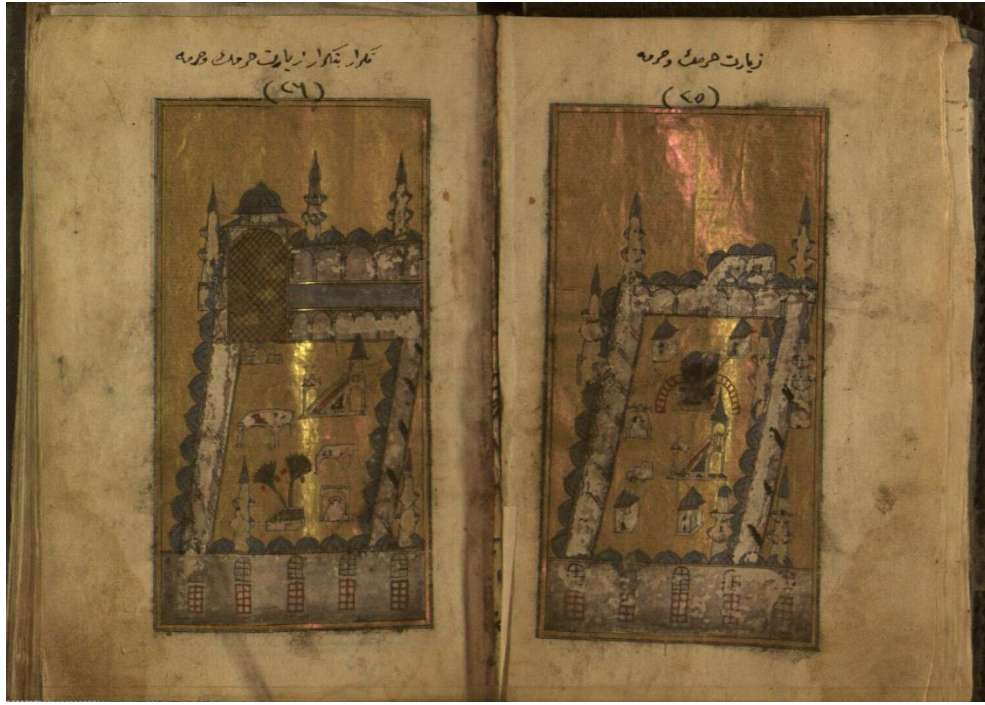 زيارت حرمك وحرمه
(٢٥)
تكرار بتكرار زيارت حرمك وحرمه
(٢٦)